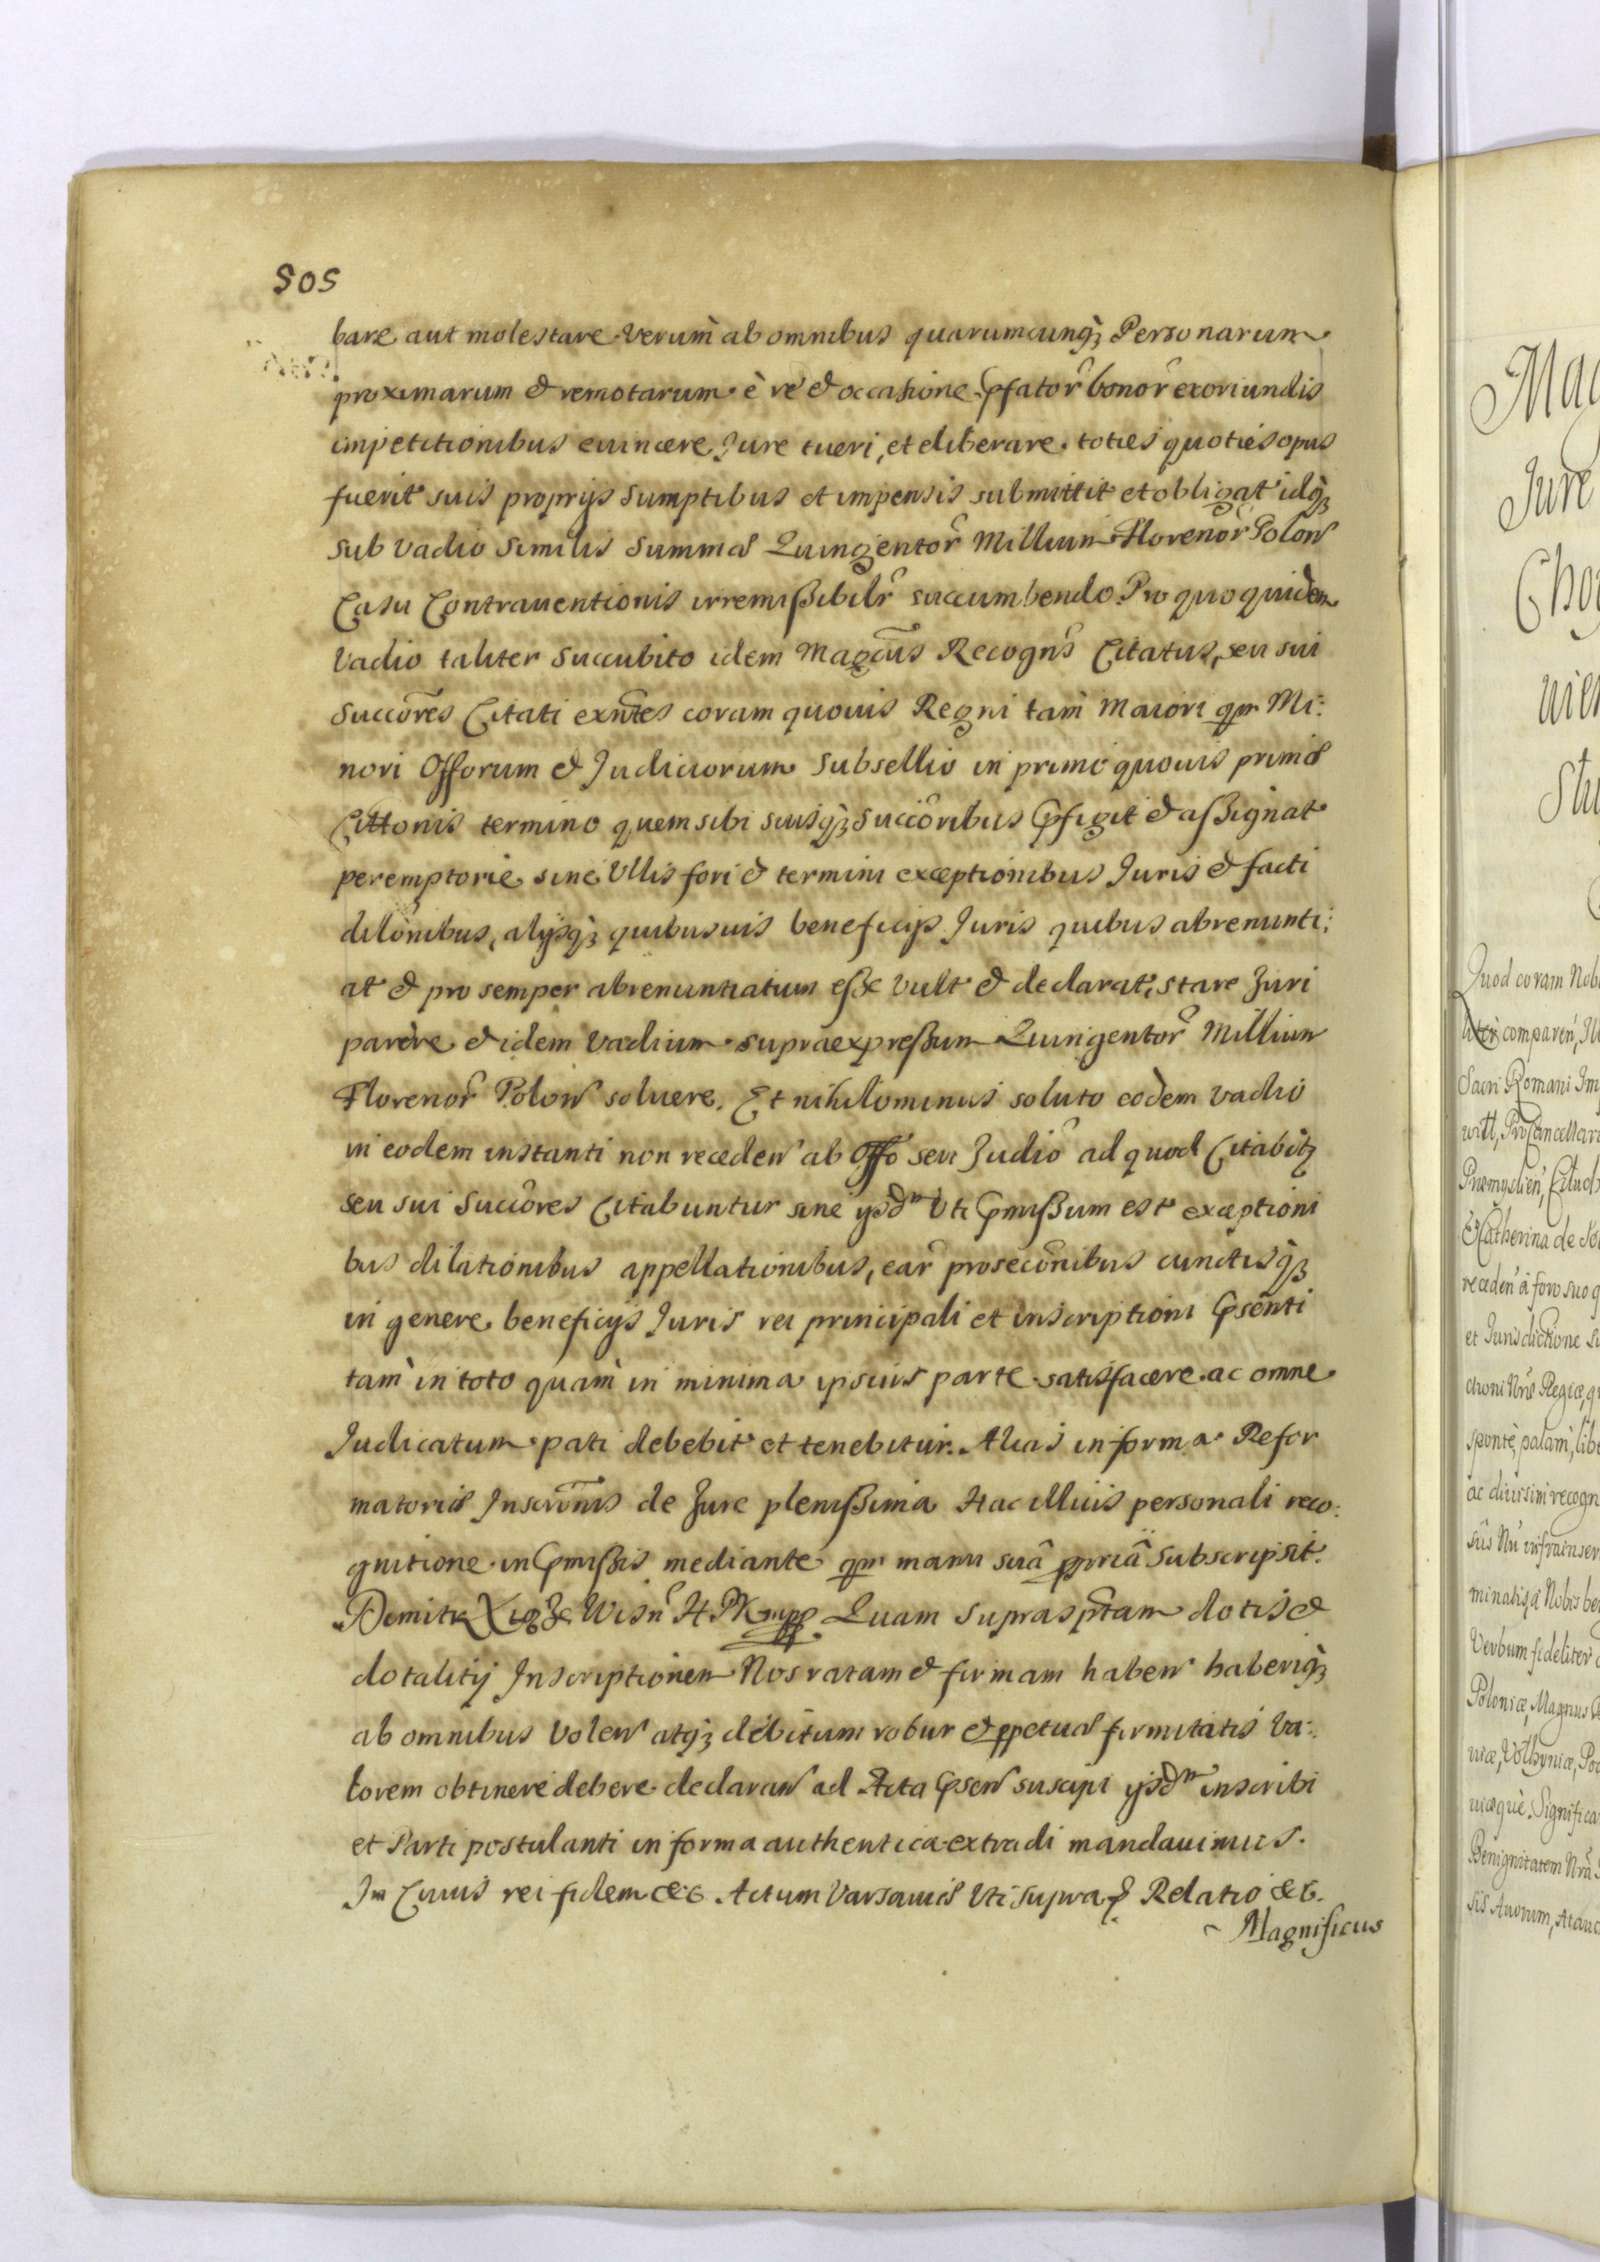 505
bare aut molestare verum ab omnibus quarumcunqꝫ Personarum
proximarum & remotarum è re & occasione pfator bonor exoriundis
impetitionibus euincere Jure tueri, et eliberare toties quoties opus
fuerit suis proprÿs sumptibus et impensis submittit et obligat idqꝫ
sub vadio similis summæ Quingentor Millium Florenor Polon
Casu Contrauentionis irremißibilr succumbendo. Pro quo quidem
Vadio taliter succubito idem Magcus Recogns Citatus, seu sui
Succores Citati exntes coram quouis Regni tam Maiori qm Mi:
nori Offorum & Judiciorum subsellio in primo quouis primæ
Cittonis termino quem sibi suisqꝫ succoribus pfigit & aßignat
peremptorie sine Vllis fori & termini exceptionibus Juris & facti
dilonibus, alÿsqꝫ quibusuis beneficijs Juris quibus abrenunti:
at & pro semper abrenuntiatum eße vult & declarat, stare Juri
parere & idem Vadium supraexpreßum Quingentor Millium
Florenor Polon soluere. Et nihilominus soluto eodem vadio
in eodem instanti non receden ab Offo seu Judio ad quod Citabitꝫ
seu sui Succores Citabuntur sine ÿsdm Vti pmißum est exceptioni
bus dilationibus appellationibus, ear prosecōnibus cunctisqꝫ
in genere beneficÿs Juris rei principali et inscriptioni psenti
tam in toto quàm in minima ipsius parte satisfacere ac omne
Judicatum pati debebit et tenebitur. Alias in forma Refor
matoriæ Inscronis de Jure plenißima Hac illius personali reco:
gnitione in pmißis mediante qm manu suâ ppriâ subscripsit.
Demitr Xiąże Wisn H P K mpp Quam supra sptam dotis &
dotalitÿ Inscriptionem Nos ratam & firmam haben haberiqꝫ
ab omnibus volen atqꝫ debitum robur & ppetuæ firmitatis va:
lorem obtinere debere declaran ad Acta psen suscipi ÿsdm inscribi
et Parti postulanti in forma authentica extradi mandauimus.
In Cuius rei fidem &c. Actum Varsauiæ Vti supra Relatio &c.
Magnificus
Mag
Jure
Quod coram Nob
comparen,
Sacri Romani Im
witt, ProCancellar
Præmyslien,
Catherina de
receden à foro suo q
et Jurisdictione
ctioni Nræ Regiæ, q
sponte, palam, lib
ac diuisim recogn
minatis
Verbum fideliter
Poloniæ, Magnus
uiæ, Volhyniæ, Po
uiæquè. Significa
Benignitatem Nrã
sis Auorum, Atauo